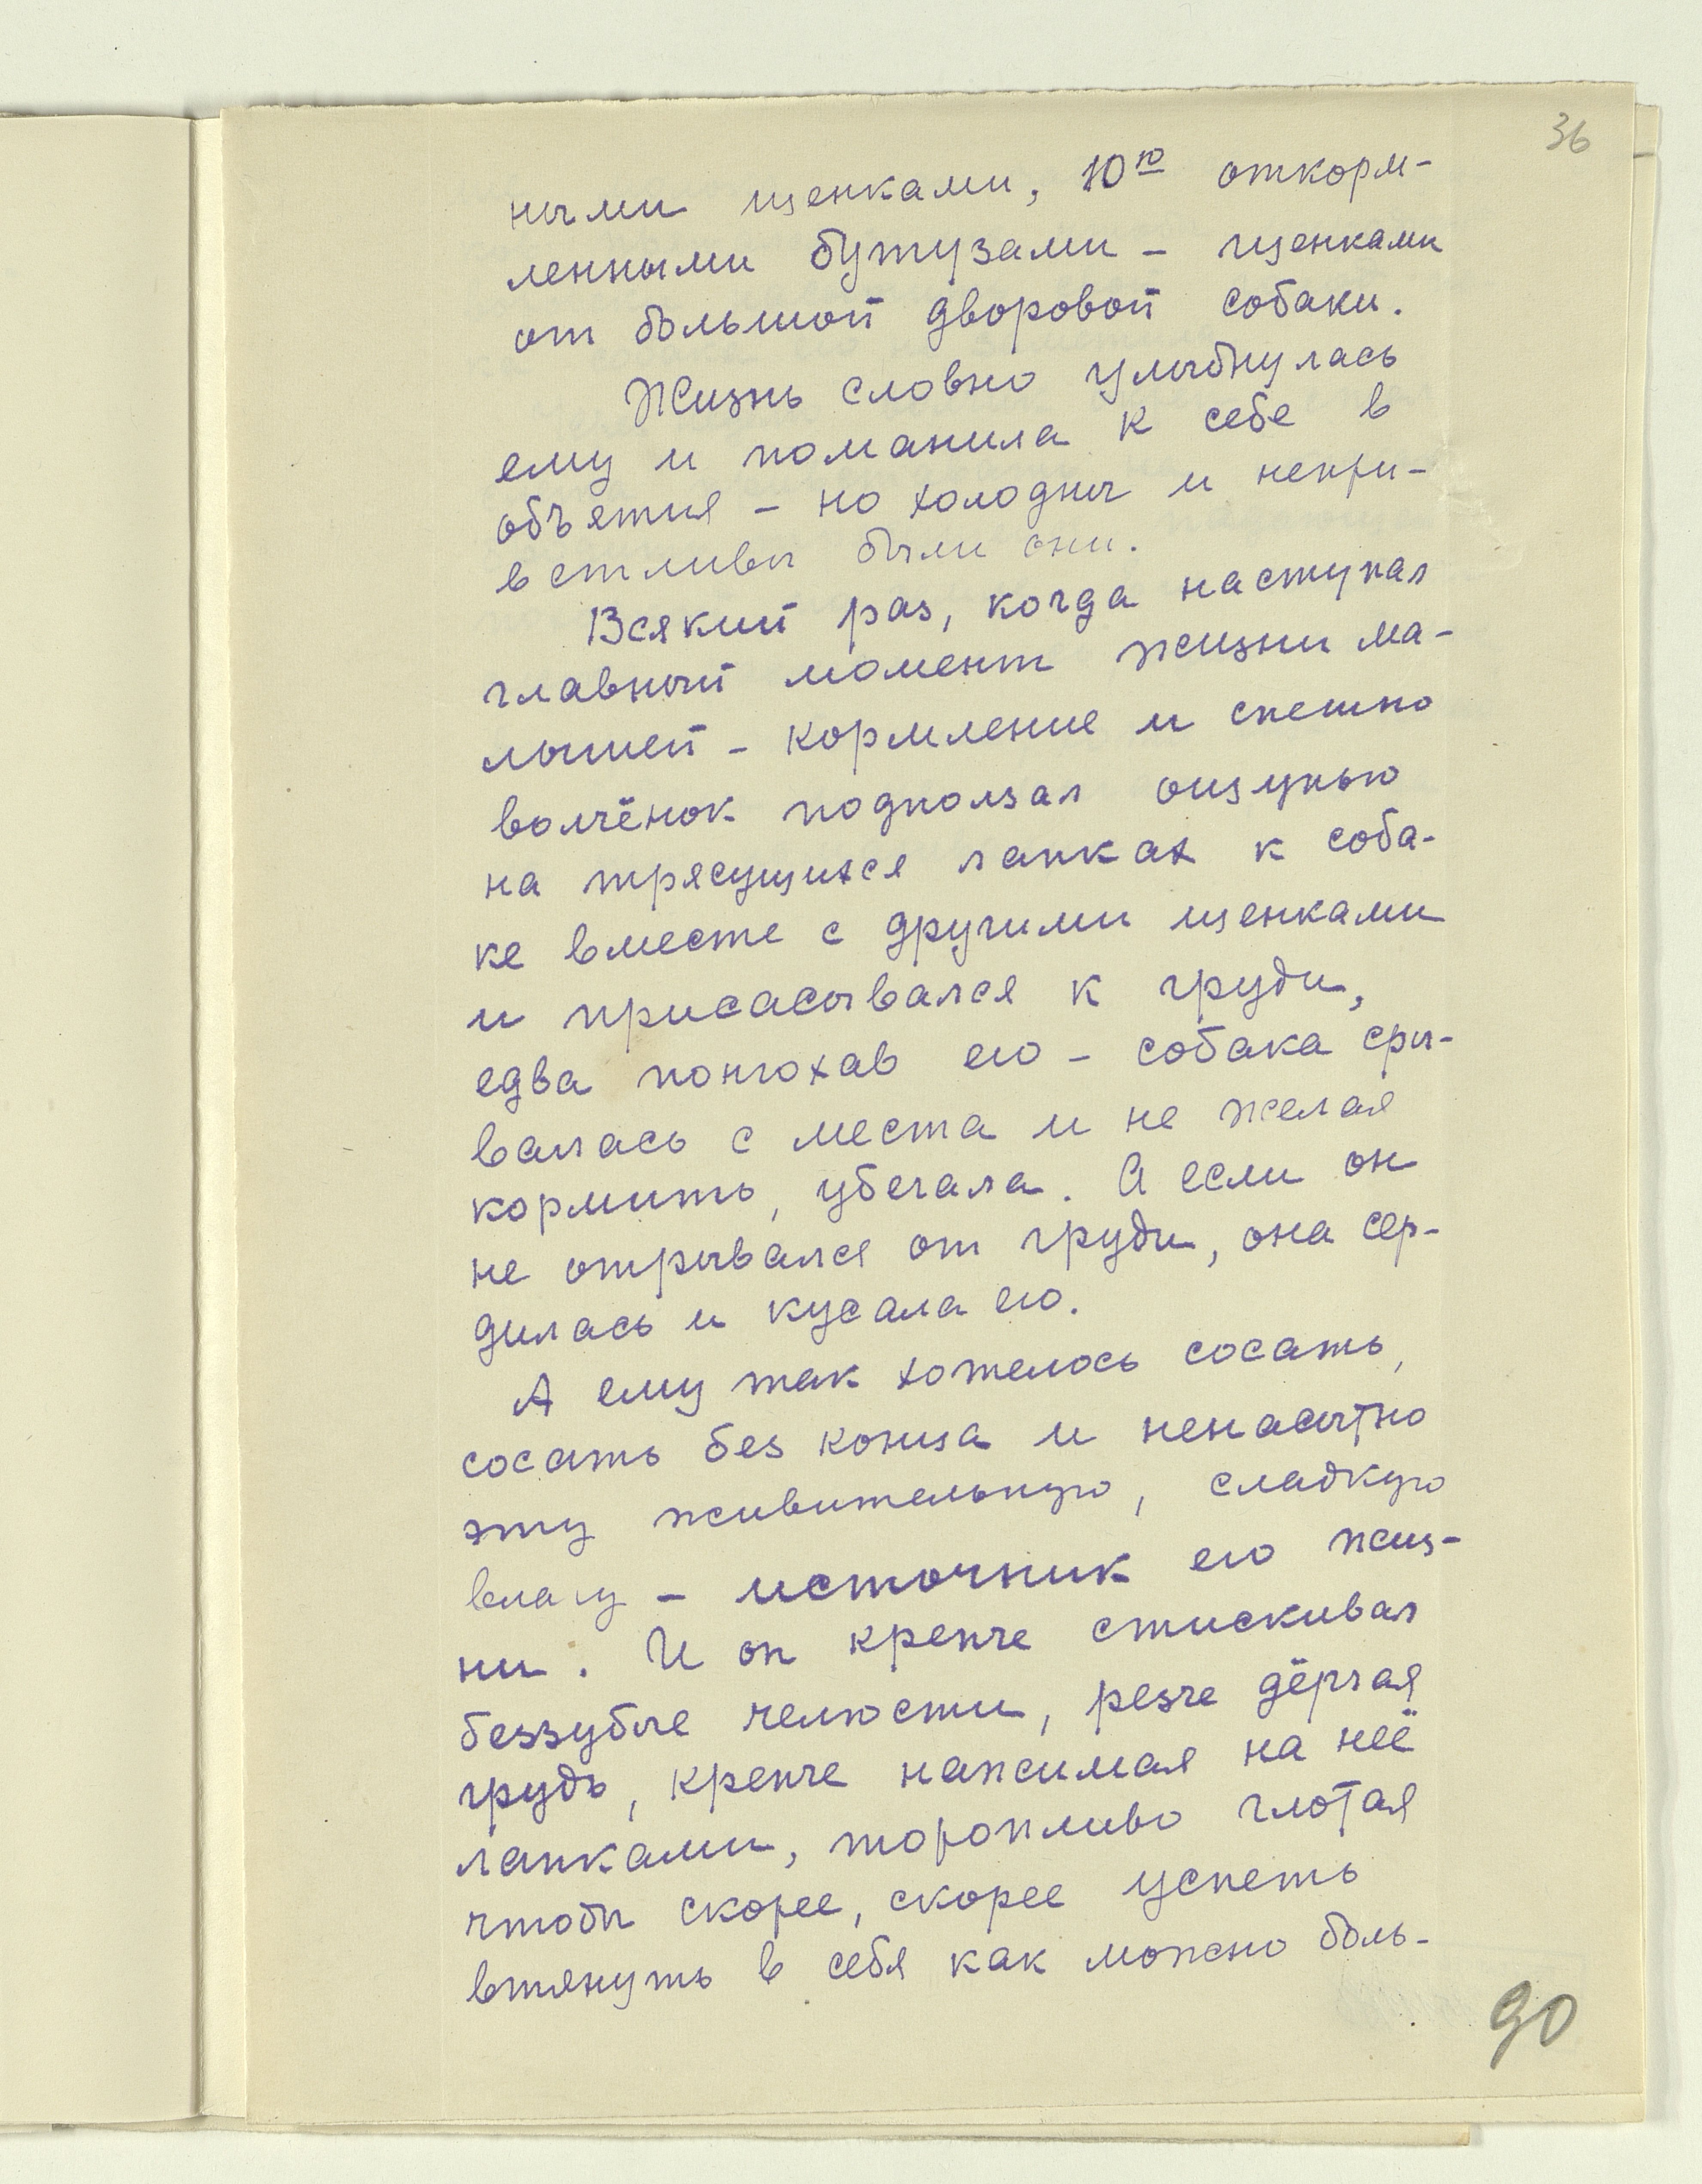 36
ными щенками, 10ю откорм-
ленными бутузами – щенками
от большой дворовой собаки.
Жизнь словно улыбнулась
ему и поманила к себе в
объятия – но холодны и непри-
встливы были они.
Всякий раз, когда наступал
главный момент жизни ма-
лышей – кормление и спешно
волчёнок подползал ощупью
на трясущихся лапках к соба-
ке вместе с другими щенками
и присасывался к груди,
едва понюхав его – собака сры-
валась с места и не желая
кормить, убегала. А если он
не отрывался от груди, она сер-
дилась и кусала его.
А ему так хотелось сосать,
сосать без конца и ненасытно
эту живительную, сладкую
влагу – источник его жиз-
ни. И он крепче стискивал
беззубые челюсти, резче дёргая
грудь, крепче нажимая на неё
лапками, торопливо глотая
чтобы скорее, скорее успеть
втянуть в себя как можно боль-
90